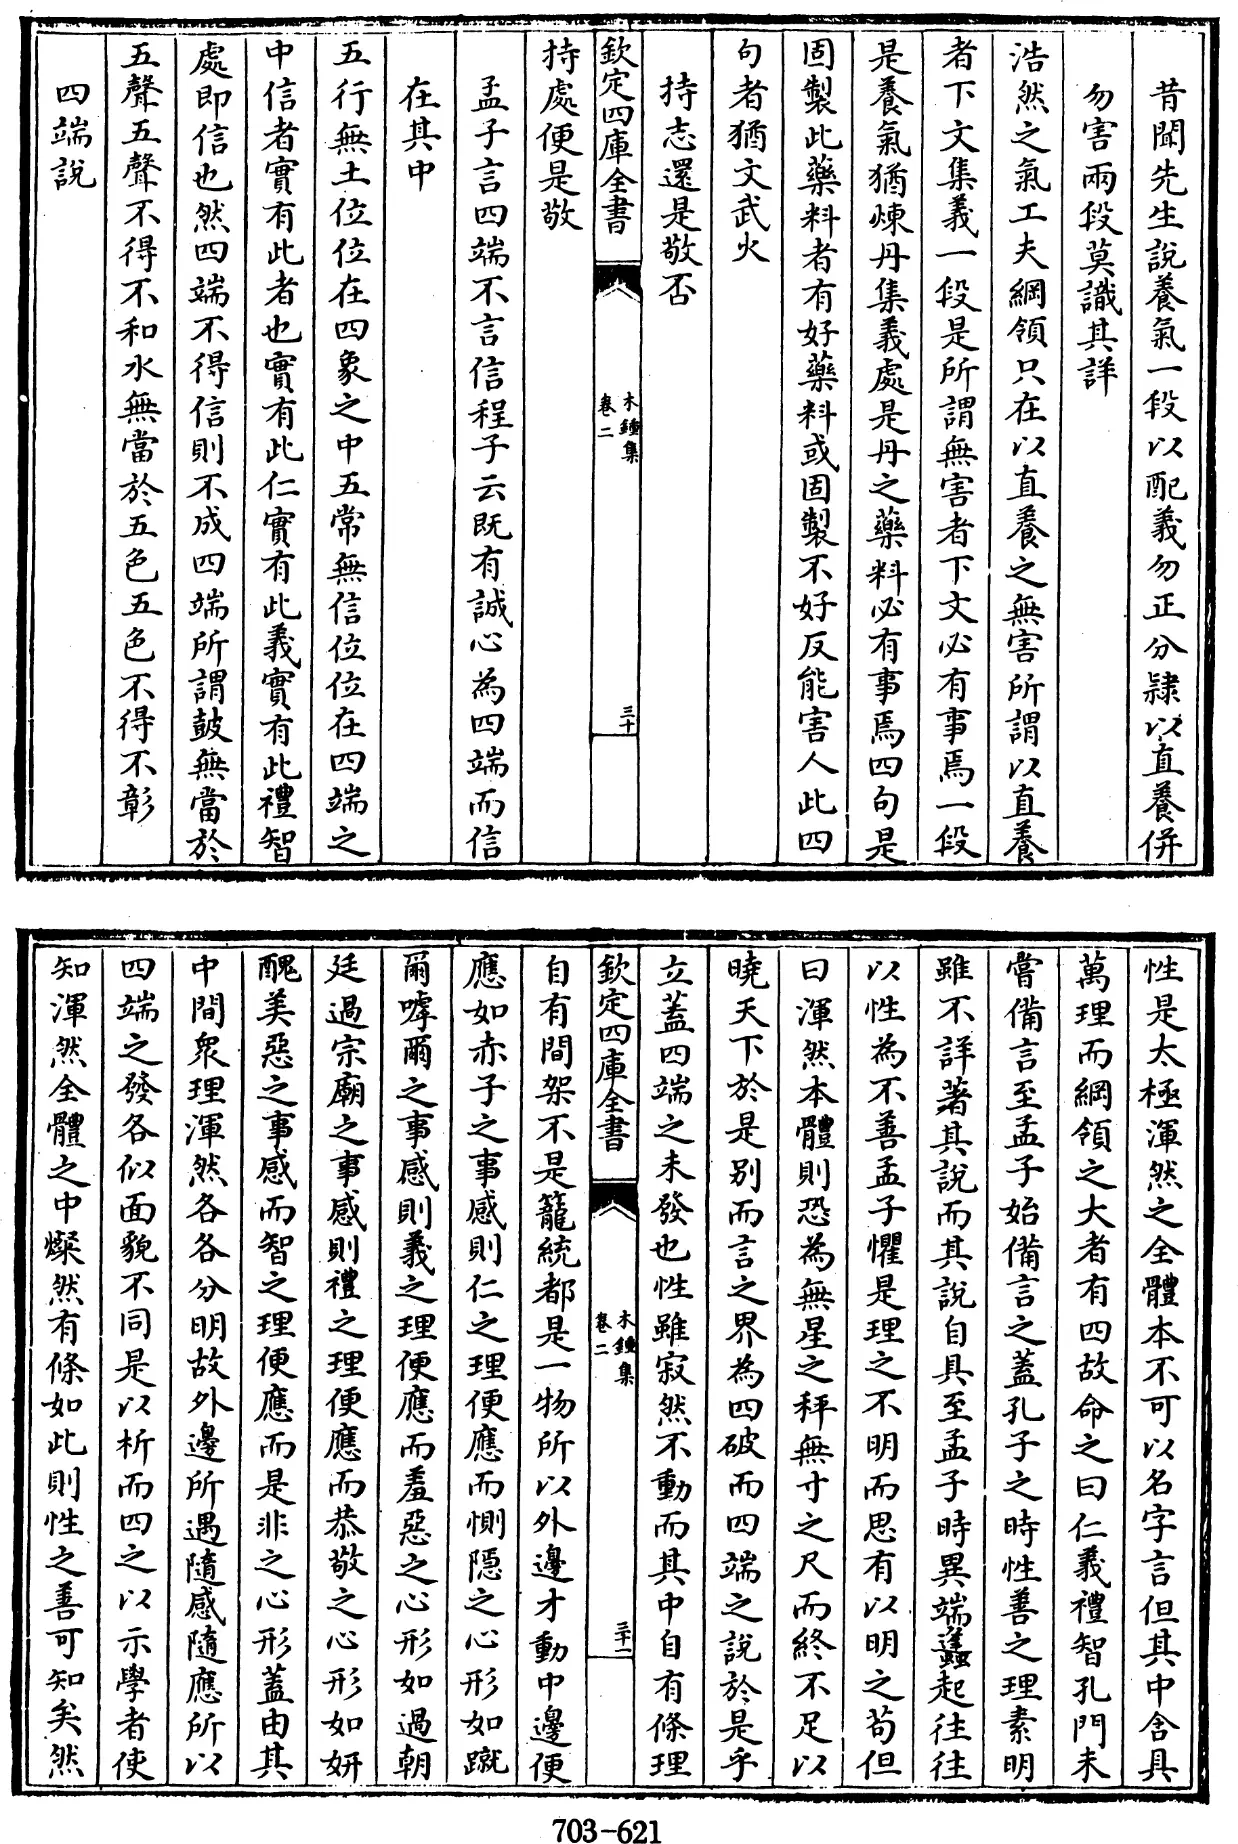 昔聞先生說養氣一段以配義勿正分隸以直養併
勿害兩段莫識其詳
浩然之氣工夫綱領只在以直養之無害所謂以直養
者下文集義一段是所謂無害者下文必有事焉一段
是養氣猶煉丹集義處是丹之藥料必有事焉四句是
固製此藥料者有好藥料或固製不好反能害人此四
句者猶文武火
持志還是敬否
欽定四庫全書
木鍾集
卷二
三十
持處便是敬
孟子言四端不言信程子云既有誠心為四端而信
在其中
五行無土位位在四象之中五常無信位位在四端之
中信者實有此者也實有此仁實有此義實有此禮智
處即信也然四端不得信則不成四端所謂鼓無當於
五聲五聲不得不和水無當於五色五色不得不彰
四端說
性是太極渾然之全體本不可以名字言但其中含具
萬理而綱領之大者有四故命之曰仁義禮智孔門未
嘗備言至孟子始備言之蓋孔子之時性善之理素明
雖不詳著其說而其說自具至孟子時異端蠭起往往
以性為不善孟子懼是理之不明而思有以明之苟但
曰渾然本體則恐為無星之秤無寸之尺而終不足以
曉天下於是別而言之界為四破而四端之說於是乎
立蓋四端之未發也性雖寂然不動而其中自有條理
欽定四庫全書
木鍾集
卷二
三十一
自有間架不是籠統都是一物所以外邊才動中邊便
應如赤子之事感則仁之理便應而惻隱之心形如蹴
爾嘑爾之事感則義之理便應而羞惡之心形如過朝
廷過宗廟之事感則禮之理便應而恭敬之心形如妍
醜美惡之事感而智之理便應而是非之心形蓋由其
中間衆理渾然各各分明故外邊所遇隨感隨應所以
四端之發各似面貌不同是以析而四之以示學者使
知渾然全體之中燦然有條如此則性之善可知矣然
703-621